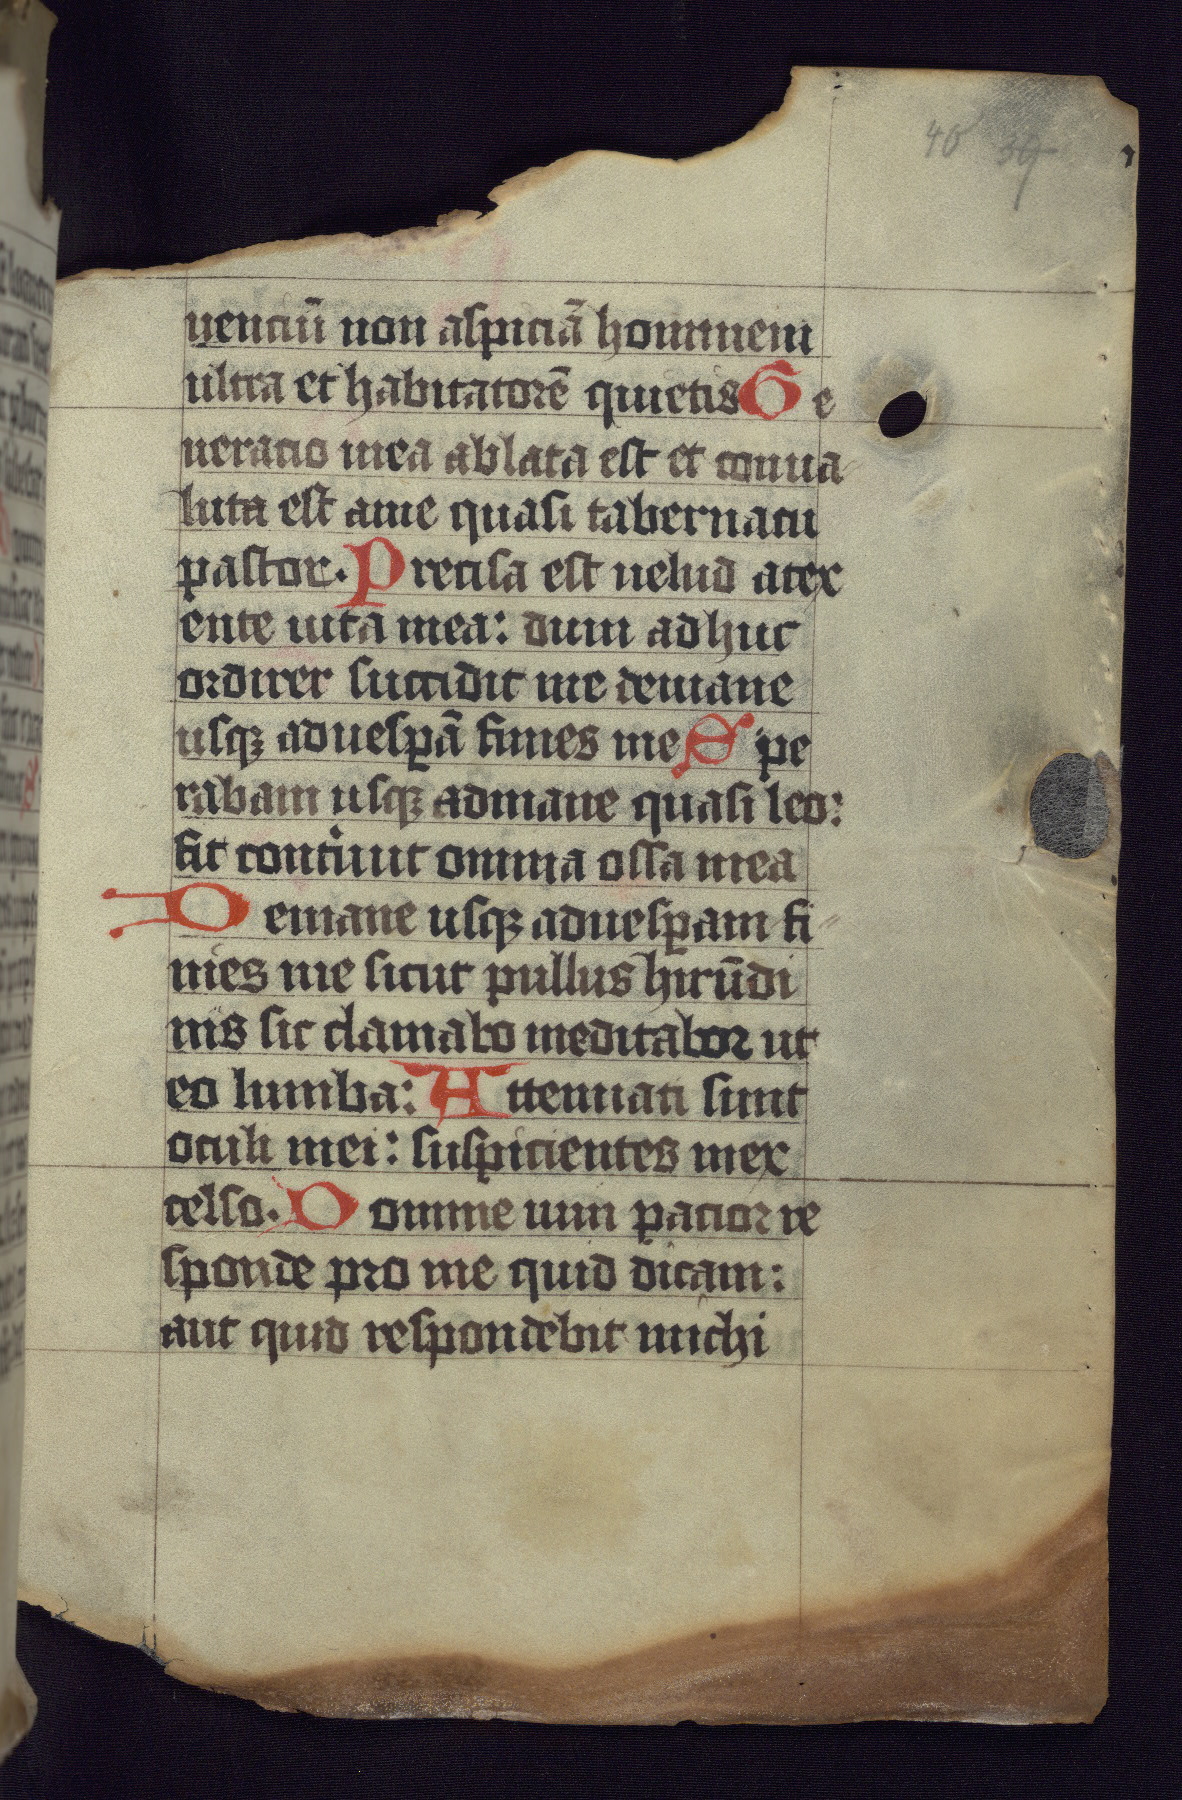 40 39
uenciū non aspiciā hominem
ultra et habitatorē quietis Ge
neracio mea ablata est et conua
luta est ame quasi tabernacu
pastor. Precisa est uelud atex
ente uita mea: dum adhuc
ordirer succidit me demane
usqꝫ aduesꝑā finies me Spe
rabam usqꝫ admane quasi leo:
sic contriuit omnia ossa mea
Demane usqꝫ aduesꝑam fi
nies me sicut pullus hirūdi
nis sic clamabo meditabor ut
co lumba: Attenuati sunt
oculi mei: suspicientes inex
celso. Domine uim pacior re
sponde pro me quid dicam:
aut quid respondebit michi